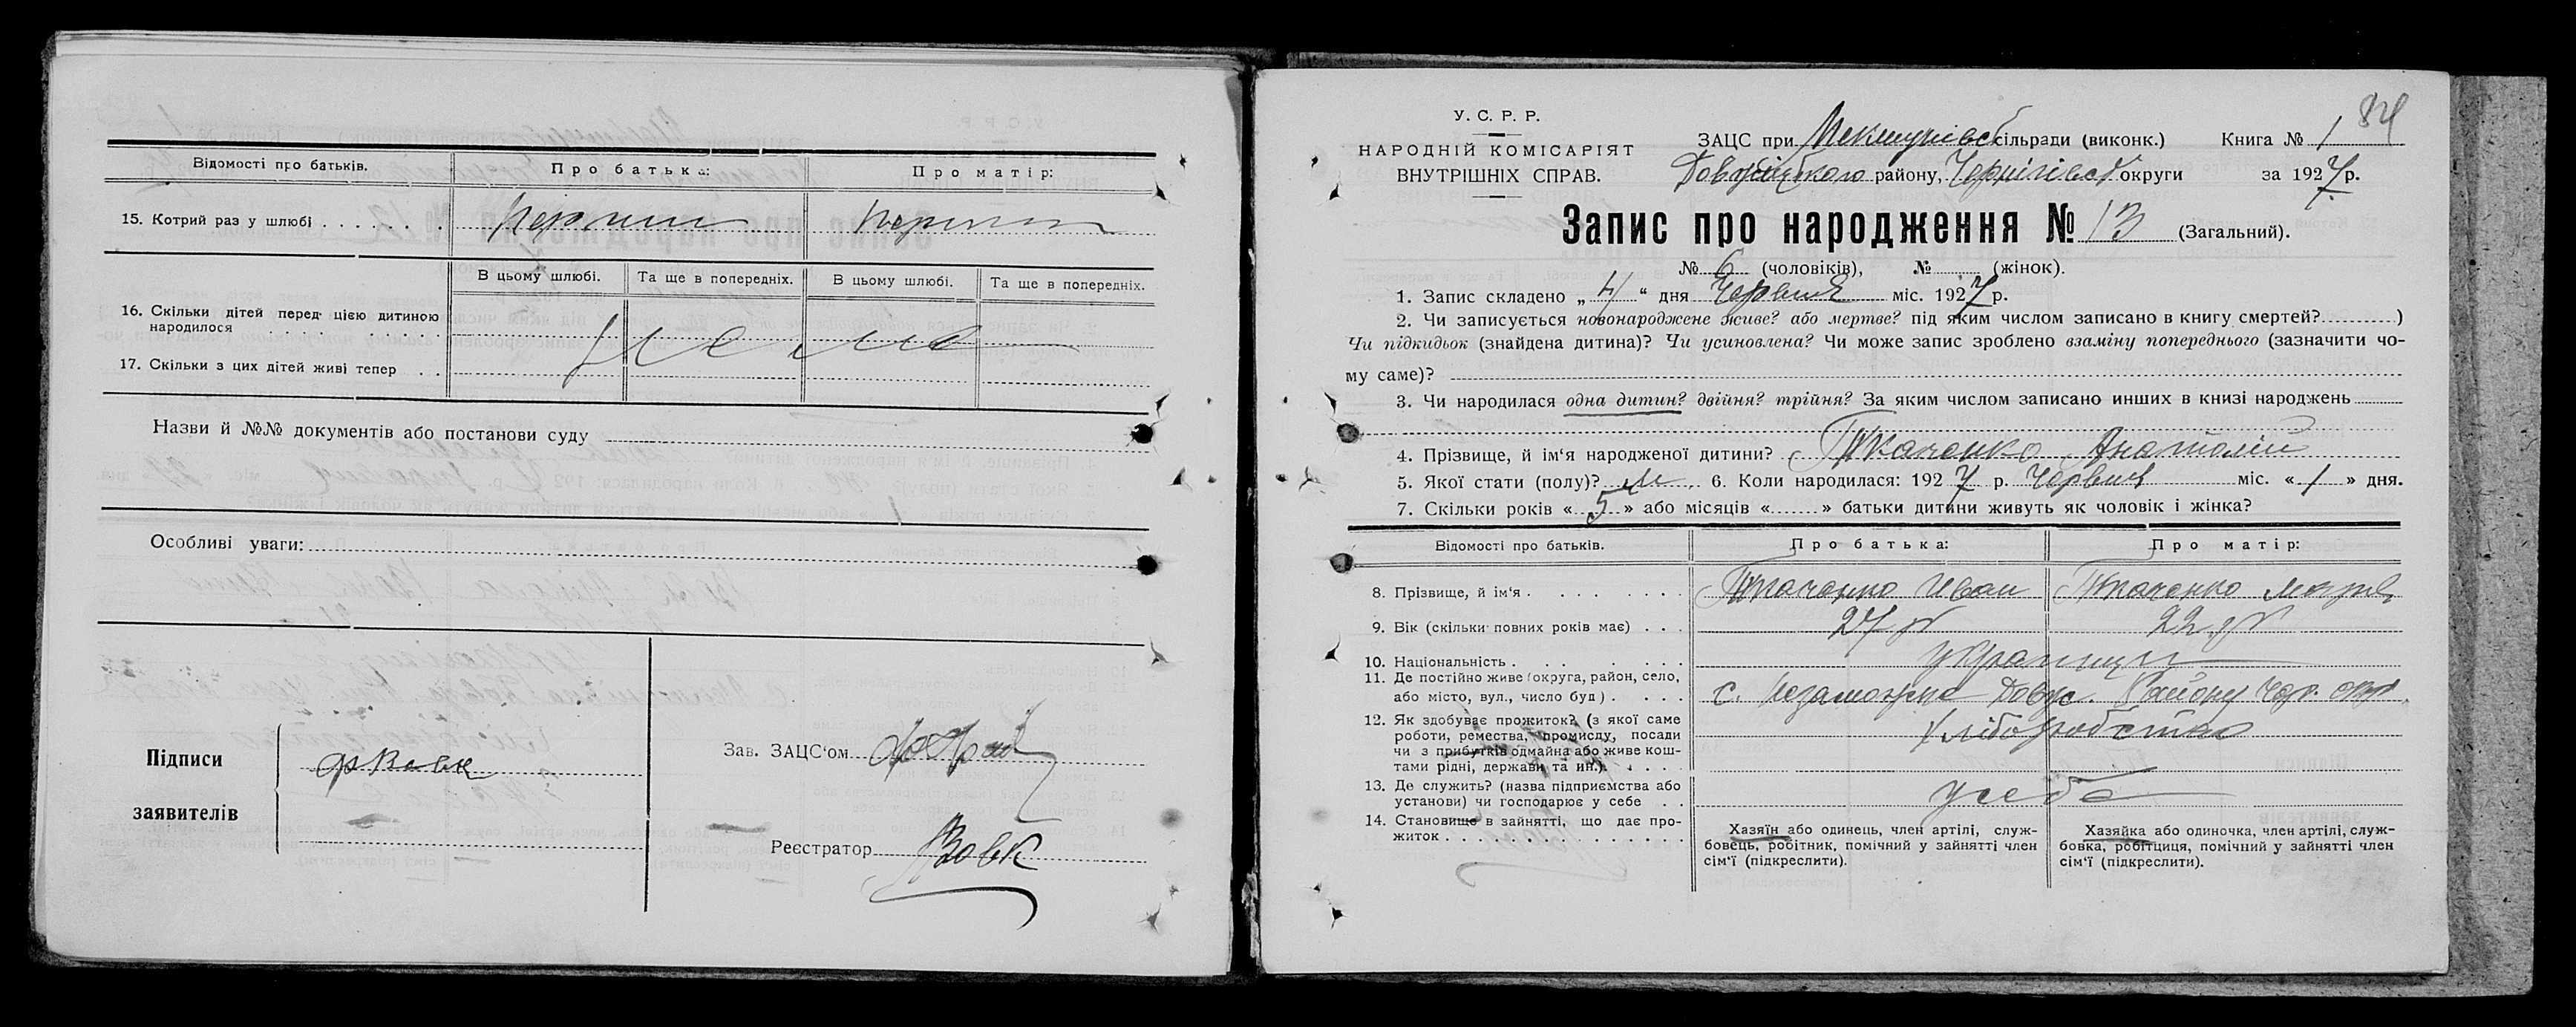 Відомості про батьків. Про батька: Про матір:
15. Котрий раз у шлюбі . . . . . . . перший перший
В цьому шлюбі. Та ще в попередніх. В цьому шлюбі. Та ще в попередніх.
16. Скільки дітей перед цією дитиною
народилося . . . . . . . . . .
нема
17. Скільки з цих дітей живі тепер . .
Назви й №№ документів або постанови суду
Особливі уваги:
Підписи
заявителів
Зав. ЗАЦС'ом
Реєстратор Вовк
84
У. С. Р. Р.
НАРОДНІЙ КОМІСАРІЯТ
ВНУТРІШНІХ СПРАВ.
ЗАЦС при сільради (виконк.) Книга № 1
району, Чернігівсь округи за 1927 р.
Запис про народження № 13 (Загальний).
№ 6 (чоловіків), № (жінок).
1. Запис складено „ 4 “ дня Червня міс. 1927 р.
2. Чи записується новонароджене живе? або мертве? під яким числом записано в книгу смертей? )
Чи підкидьок (знайдена дитина)? Чи усиновлена? Чи може запис зроблено взаміну попереднього (зазначити чо-
му саме)?
3. Чи народилася одна дитин? двійня? трійня? За яким числом записано инших в книзі народжень
4. Прізвище, й ім'я народженої дитини? Ткаченко Анатолій
5. Якої стати (полу)? м 6. Коли народилася: 1927 р. Червня міс. « 1 » дня.
7. Скільки років « 5 » або місяців « » батьки дитини живуть як чоловік і жінка?
Відомості про батьків. Про батька: Про матір:
8. Прізвище, й ім'я . . . . . . Ткаченко Иван Ткаченко Марія
9. Вік (скільки повних років має) . . . 27 р 22 р
10. Національність . . . . . . українці
11. Де постійно живе (округа, район, село,
або місто, вул., число буд) . . . . с. Довж. Району Чер. окр.
12. Як здобуває прожиток? (з якої саме
роботи, ремества, промислу, посади
чи з прибутків одмайна або живе кош-
тами рідні, держави та ин.). . . . .
хліборобство
13. Де служить? (назва підприємства або
установи) чи господарює у себе . .
у себе
14. Становище в зайнятті, що дає про-
житок . . . . . . . . . . . . . . .
Хазяїн або одинець, член артілі, служ-
бовець, робітник, помічний у зайнятті член
сім'ї (підкреслити).
Хазяйка або одиночка, член артілі, служ-
бовка, робітниця, помічний у зайнятті член
сім'ї (підкреслити).